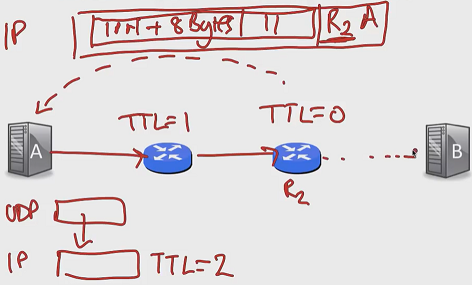 IP 8 Bytes 11 R2 A
TTL=1 TTL=0
A B
R2
UDP
IP TTL=2